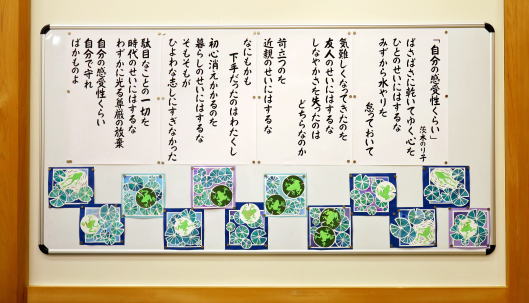 「自分の感受性くらい」
茨木のり子
ぱさぱさに乾いてゆく心を
ひとのせいにはするな
みずから水やりを
怠っておいて
気難しくなってきたのを
友人のせいにはするな
しなやかさを失ったのは
どちらなのか
苛立つのを
近親のせいにはするな
なにもかも
下手だったのはわたくし
初心消えかかるのを
暮らしのせいにはするな
そもそもが
ひよわな志しにすぎなかった
駄目なことの一切を
時代のせいにはするな
わずかに光る尊厳の放棄
自分の感受性くらい
自分で守れ
ばかものよ